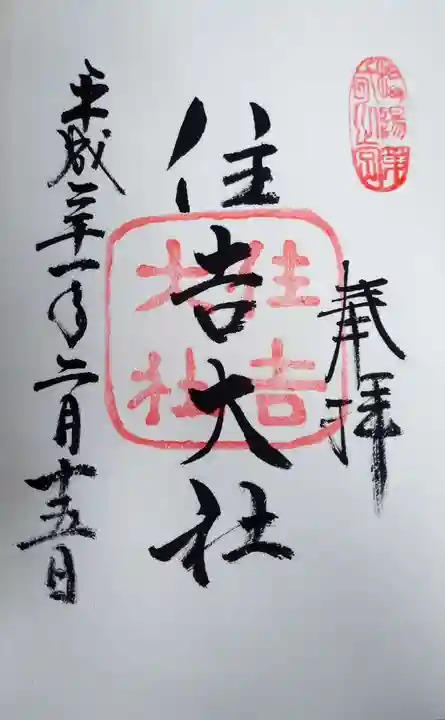 奉拝
住吉大社
住吉
大社
平成三十一年二月十五日